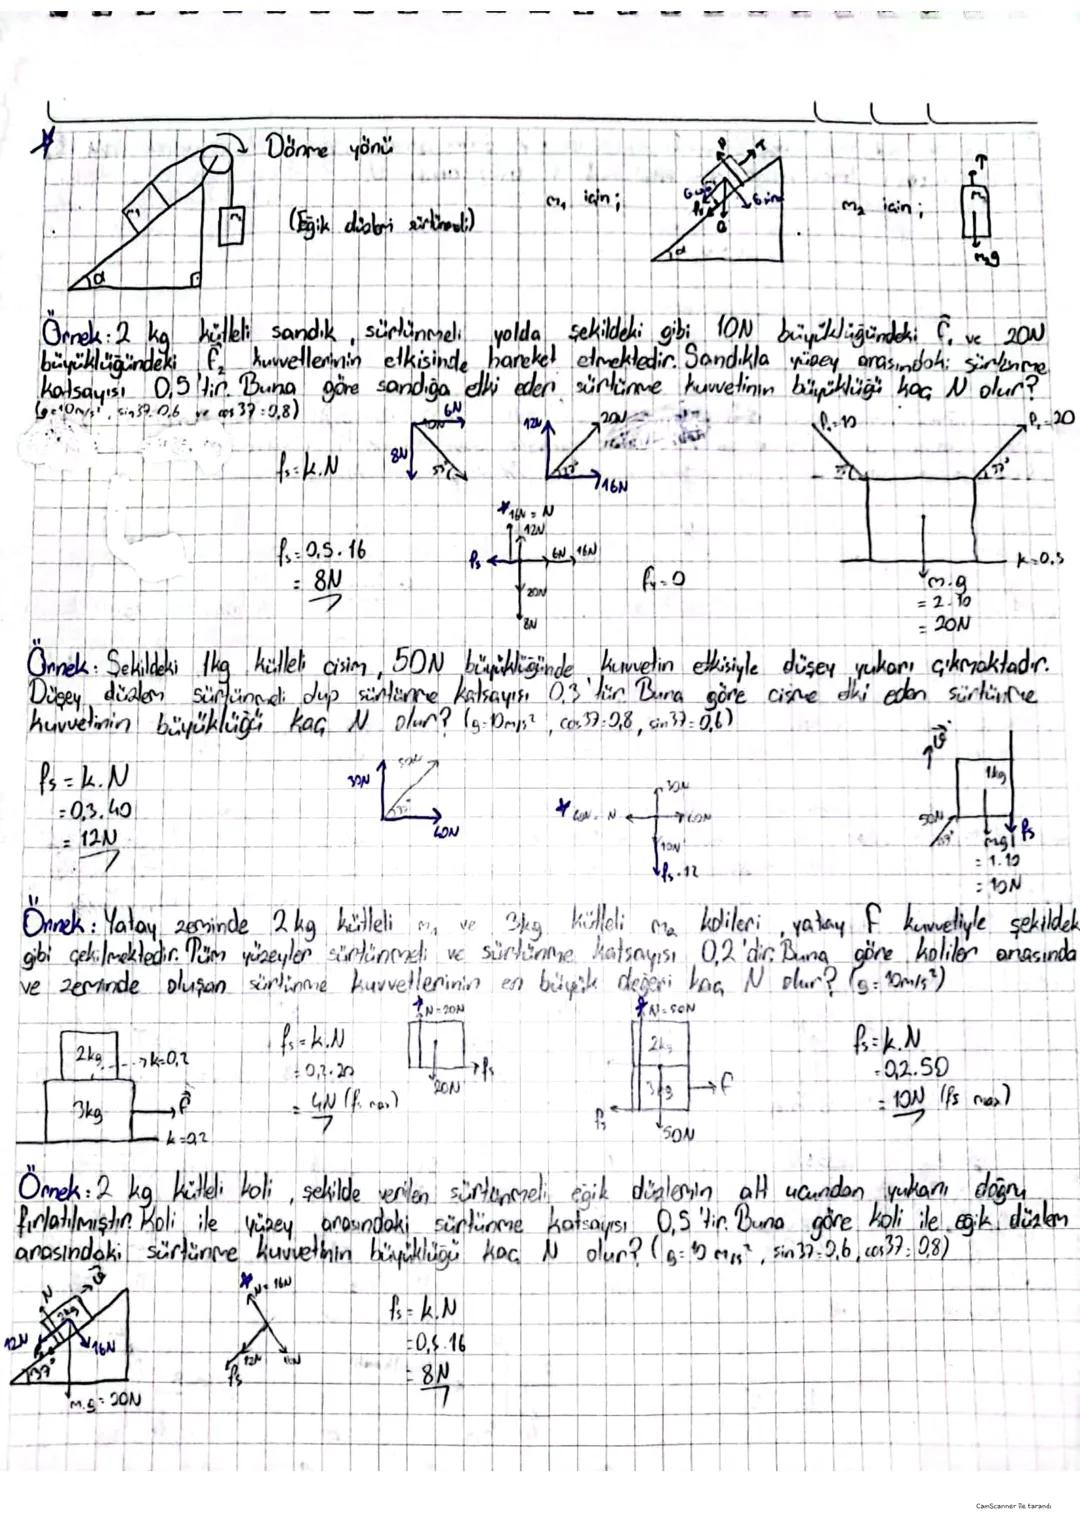 Dönme yönü
(Eğik düzlem sürtünmeli)
m₁ için;
m₂ için;
T
m₂g
α
Örnek: 2 kg kütleli sandık, sürtünmeli yolda şekildeki gibi 10N büyüklüğündeki F₁ ve 20N
büyüklüğündeki F₂ kuvvetlerinin etkisinde hareket etmektedir. Sandıkla yüzey arasındaki sürtünme
katsayısı 0,5'tir. Buna göre sandığa etki eden sürtünme kuvvetinin büyüklüğü kaç N olur?
(g=10m/s², sin37=0,6 ve cos37=0,8)
6N
10N
8N
12N
20N
37°
16N
F₁=10
F₂=20
37°
fs=k.N
16N=N
12N
fs
6N
16N
20N
8N
fs=0,5.16
= 8N
Fy=0
k=0.5
m.g
=2.10
=20N
Örnek: Şekildeki 1kg kütleli cisim, 50N büyüklüğünde kuvvetin etkisiyle düşey yukarı çıkmaktadır.
Düşey düzlem sürtünmeli olup sürtünme katsayısı 0.3'tür. Buna göre cisme etki eden sürtünme
kuvvetinin büyüklüğü kaç N olur? (g=10m/s², cos37=0,8, sin37=0,6)
fs=k.N
=0,3.40
= 12N
30N
50N
37°
40N
30N
40N=N
40N
10N
fs=12
1kg
50N
37°
fs
mg
=1.10
=10N
Örnek: Yatay zeminde 2 kg kütleli m₁ ve 3kg kütleli m₂ kolileri, yatay F kuvvetiyle şekildeki
gibi çekilmektedir. Tüm yüzeyler sürtünmeli ve sürtünme katsayısı 0,2'dir. Buna göre koliler arasında
ve zeminde oluşan sürtünme kuvvetlerinin en büyük değeri kaç N olur? (g=10m/s²)
2kg
k=0,2
3kg
F
k=0,2
fs=k.N
=0,2.20
= 4N (fs max)
N=20N
fs
20N
N=50N
2kg
3kg
F
fs
50N
fs=k.N
=0,2.50
= 10N (fs max)
Örnek: 2 kg kütleli koli, şekilde verilen sürtünmeli eğik düzlemin alt ucundan yukarı doğru
fırlatılmıştır. Koli ile yüzey arasındaki sürtünme katsayısı 0,5'tir. Buna göre koli ile eğik düzlem
arasındaki sürtünme kuvvetinin büyüklüğü kaç N olur? (g=10m/s², sin37=0,6, cos37=0,8)
N
2kg
12N
16N
37°
m.g=20N
N=16N
12N
fs
fs=k.N
=0,5.16
= 8N
CamScanner ile tarandı